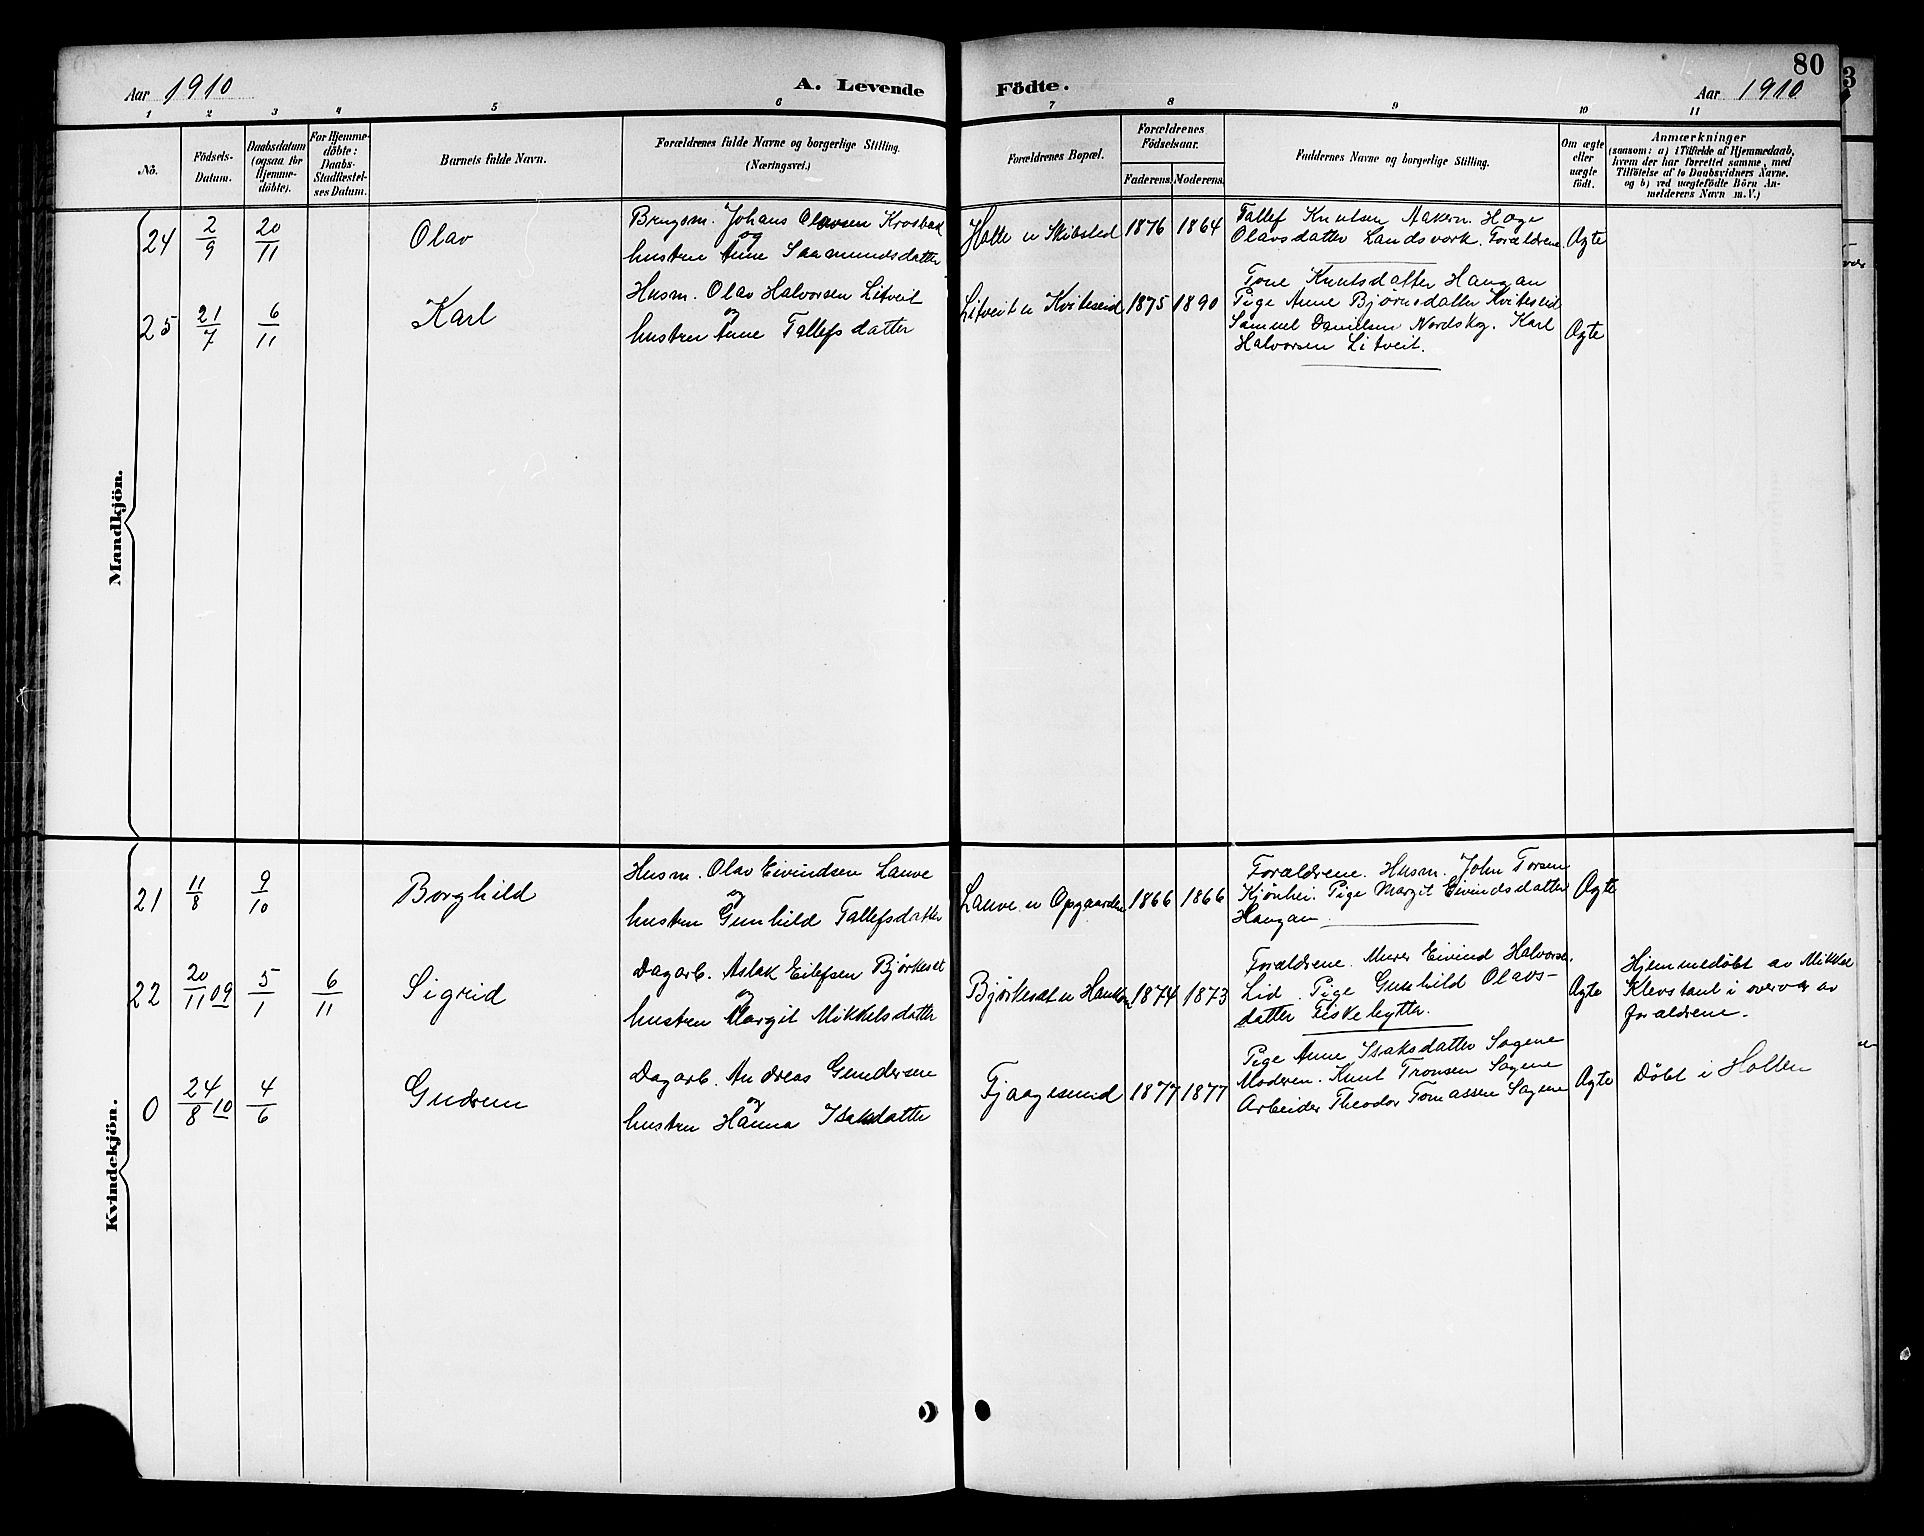 80
Aar 1910
A. Levende
Födte.
Aar 1910
1 2 3 4 5 6 7 8 9 10 11
No.
Födsels-
Datum.
Daabsdatum
(ogsaa for
Hjemme-
döbte).
For Hjemme-
döbte:
Daabs-
Stadfæstel-
ses Datum.
Barnets fulde Navn.
Forældrenes fulde Navne og borgerlige Stilling.
(Næringsvei.)
Forældrenes Bopæl.
Forældrenes
Födselsaar.
Faderens. Moderens.
Faddernes Navne og borgerlige Stilling.
Om ægte
eller
uægte
födt.
Anmærkninger
(saasom: a) i Tilfælde af Hjemmedaab,
hvem der har forrettet samme, med
Tilföielse af to Daabsvidners Navne.
og b) ved uægtefödte Börn An-
melderens Navn m. V.)
Mandkjön.
24
2/9
20/11
Olav
Brugsm. Johans Olavsen Krosbæk
og
hustru Anne Saamundsdatter
Holte u Skibsted
1876 1864
Tallef Knutsen Aakern. Hæge
Olavsdatter Landsverk. Forældrene
Ægte
25
21/7
6/11
Karl
Husm. Olav Halvorsen Litveit
og
hustru Anne Tallefsdatter
Litveit u Kviteseid
1875 1890
Tone Knutsdatter Haugan
Pige Anne Bjørnsdatter Kviteseid
Samuel Danielsen Nordskog. Karl
Halvorsen Litveit.
Ægte
Kvindekjön.
21
11/8
9/10
Borghild
Husm. Olav Eivindsen Lauve
og
hustru Gunhild Tallefsdatter
Lauve u Opgaarden
1866 1866
Forældrene. Husm. John Torsen
Kjønhei. Pige Margit Eivindsdatter
Haugan
Ægte
22
20/11 09
5/1
6/11
Sigrid
Dagarb. Aslak Eilefsen Bjørkeset
og
hustru Margit Mikkelsdatter
Bjørkesæt u
1874 1873
Forældrene. Murer Eivind Halvors.
Lid. Pige Gunhild Olavs-
datter Fiskebytter.
Ægte
Hjemmedøbt av Mikkel
Klevstaul i overvær av
forældrene.
0
24/8 10
4/6
Gudrun
Dagarb. Andreas Gundersen
og
hustru Hanna Isaksdatter
Fjaagesund
1877 1877
Pige Anne Isaksdatter Sagene
Moderen. Knut Tronsen Sagene
Arbeider Theodor Tomassen Sagene
Ægte
Døbt i Hollen